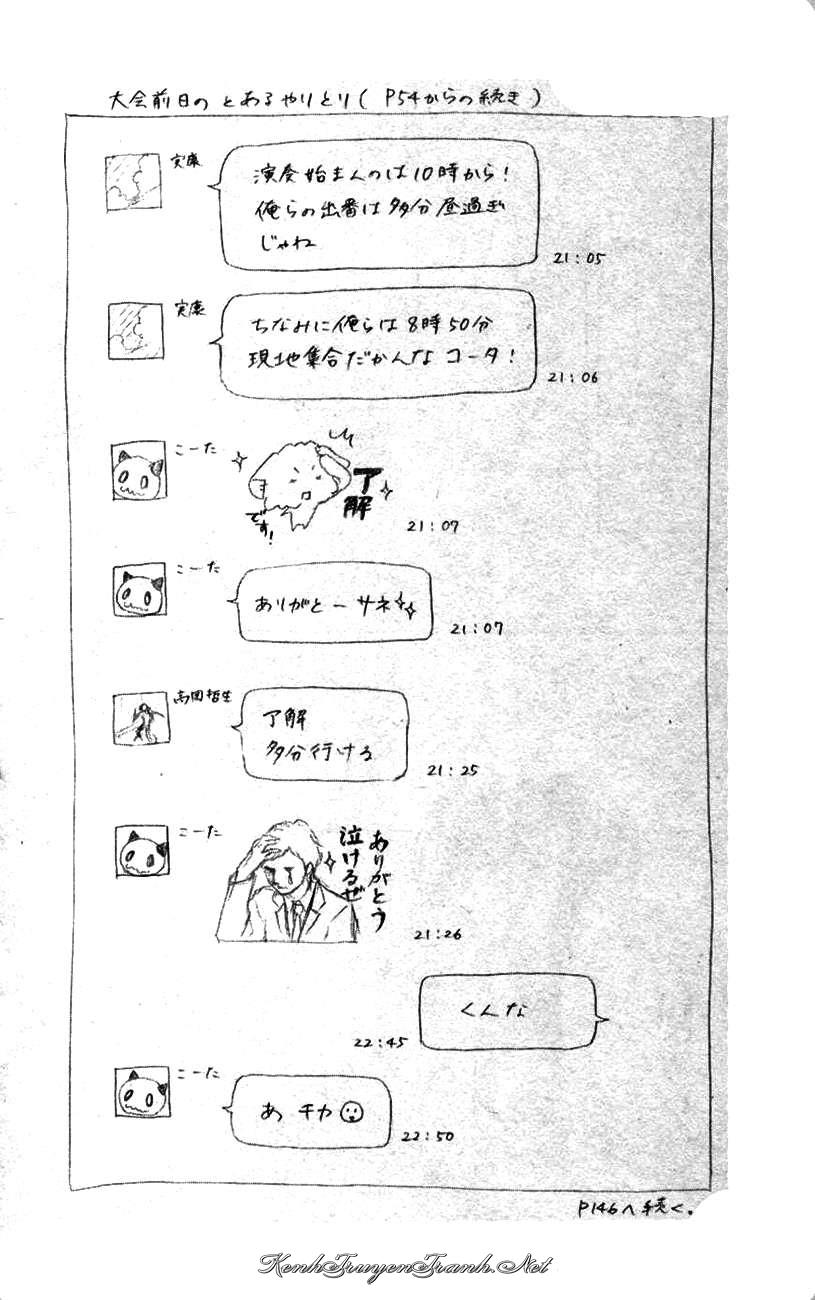 大会前日の とあるやりとり( P54からの続き )
実康
演奏始まんのは10時から!
俺らの出番は多分昼過ぎ
じゃね
21:05
実康
ちなみに俺らは8時50分
現地集合だかんな コータ!
21:06
こーた
了解
です!
21:07
こーた
ありがとー サネ
21:07
高岡哲生
了解
多分行ける
21:25
こーた
ありがとう
泣けるぜ
21:26
くんな
22:45
こーた
あ チカ
22:50
P146へ続く。
KenhTruyenTranh.Net